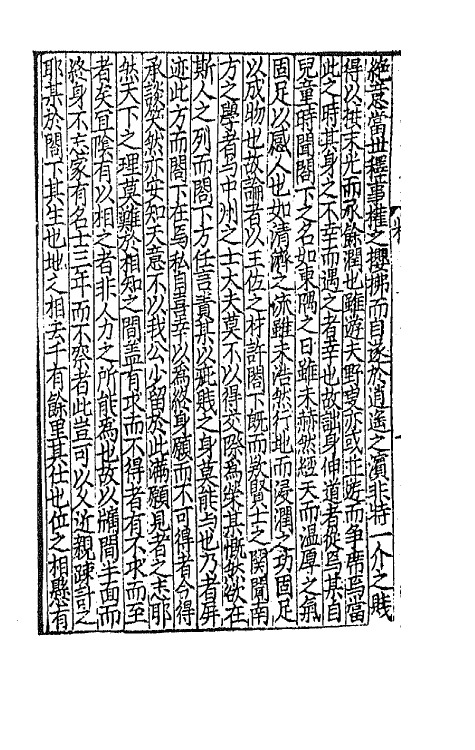 絶意當世釋事權之攖拂而自逐於逍遙之濵非特一介之賤
得以挹末光而承餘潤也雖遊夫野叟亦或並遊而争席焉當
此之時其身之不幸而遇之者幸也故詘身伸道者從焉其自
兒童時聞閤下之名如東隅之日雖未赫然經天而温厚之氣
固足以感人也如清濟之流雖未浩然行地而浸潤之功固足
以成物也故論者以王佐之材許閤下既而教督士之闗閩南
方之學者与中州之士大夫莫不以得交際為榮其慨然欲在
斯人之列而閤下方任言責其以疵賤之身莫能与也乃者屏
迹此方而閤下在焉私自喜幸以為終身願而不可得者今得
承談笑然亦安知天意不以我公少留於此滿願見者之志耶
然天下之理莫難於相知之間盖有求而不得者有不求而至
者矣冝隂有以相之者非人力之所能為也故以牖間士面而
終身不忘家有名士三年而不察者此豈可以久近親踈計之
耶某於閤下其生也地之相去千有餘里其仕也位之相懸有